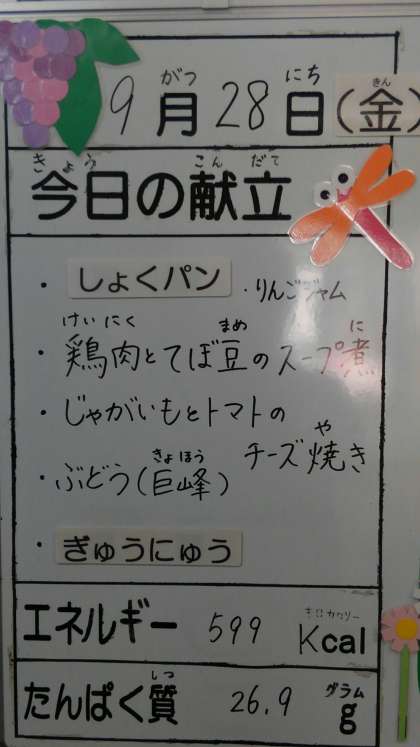 がつ にち きん
9月28日(金)
きょう こんだて
今日の献立
・しょくパン ・りんごジャム
けいにく まめ に
・鶏肉とてぼ豆のスープ煮
・じゃがいもとトマトの
や
チーズ焼き
きょほう
・ぶどう(巨峰)
・ぎゅうにゅう
キロカロリー
エネルギー 599 Kcal
しつ グラム
たんぱく質 26.9 g